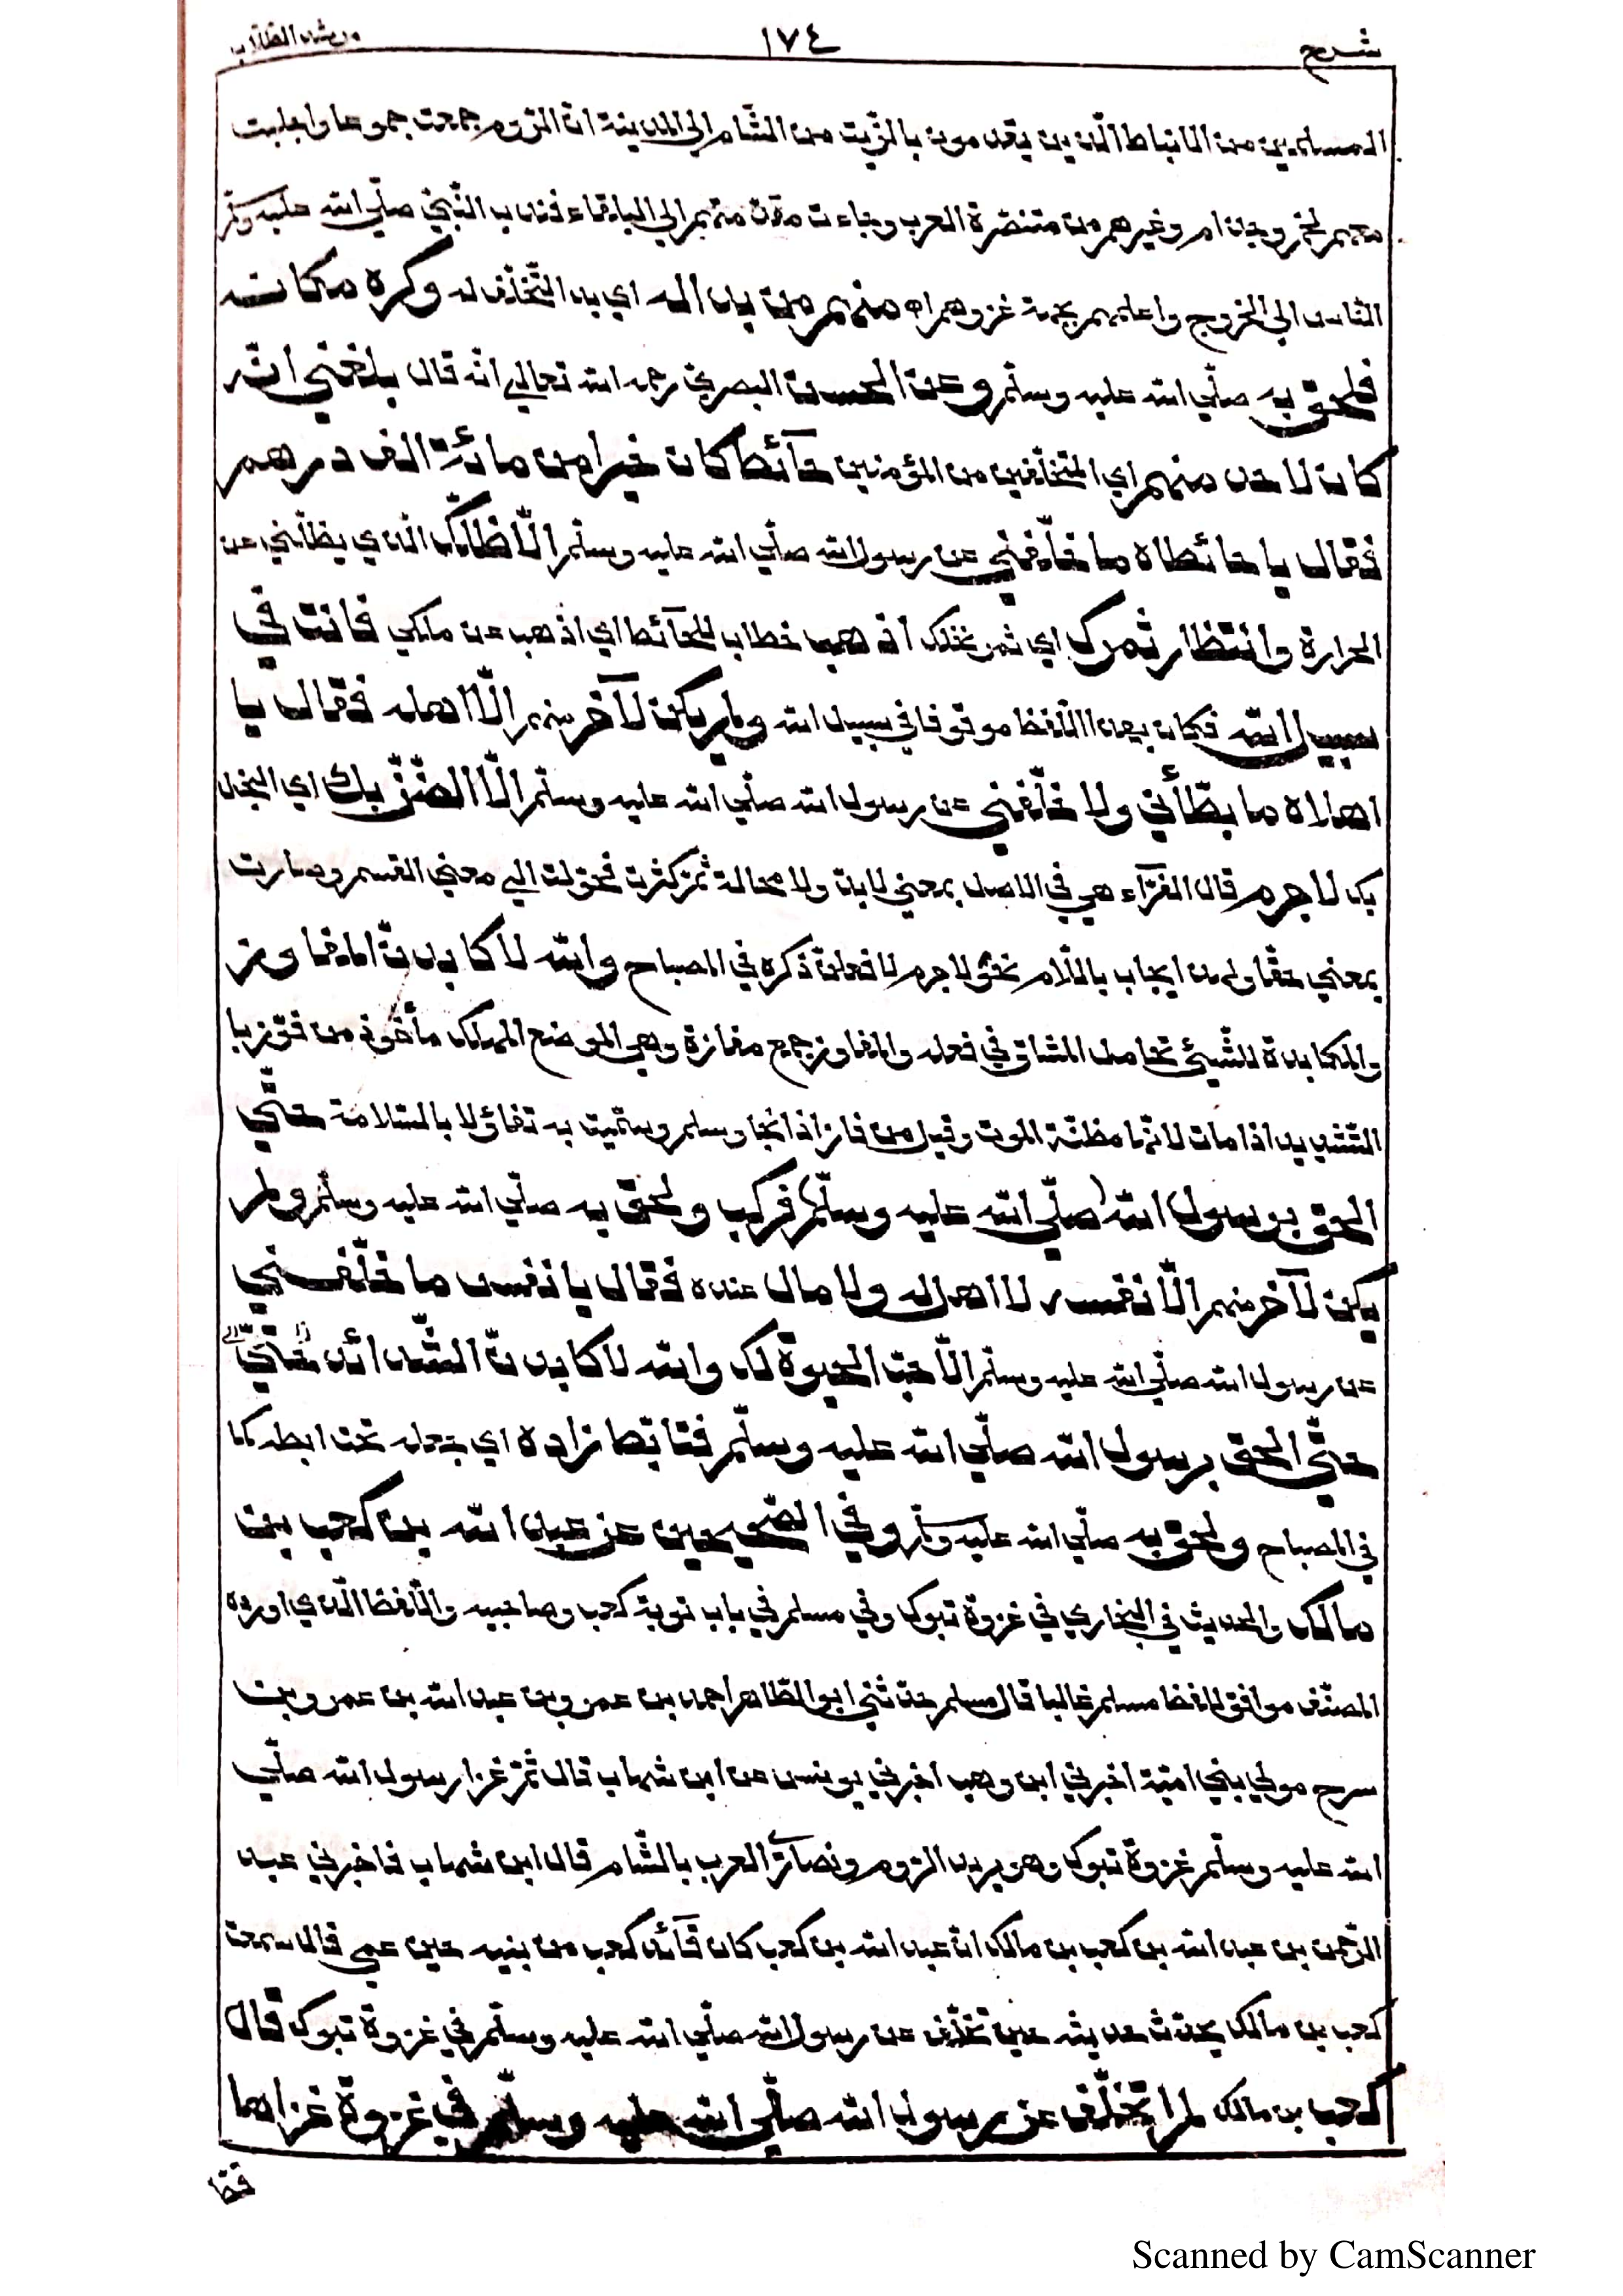 شرح ١٧٤ مرشد الطلاب
المسلمين من الانباط الّذين يقدمون بالزّيت من الشّام الى المدينة انّ الرّوم جمعت جموعا واجلبت
معهم لخم وجذام وغيرهم من متنصّرة العرب وجاءت مقدّمتهم الى البلقاء فندب النّبيّ صلّى الله عليه وسلّم
النّاس الى الخروج واعلمهم بجهة غزوهم اه منهم من بدا له اي بدا التّخلّف له وكره مكانه
فلحق به صلّى الله عليه وسلّم وعن الحسن البصريّ رحمه الله تعالى انّه قال بلغني انّه
كان لاحد منهم اي المتخلّفين من المؤمنين حآئط كان خيرا من مائة الف درهم
فقال يا حائطاه ما خلّفني عن رسول الله صلّى الله عليه وسلّم الّا ظلّك الّذي يظلّني عن
الحرارة وانتظار ثمرك اي ثمر نخلك اذهب خطاب للحآئط اي اذهب عن ملكي فانت في
سبيل الله فكان بهذا اللّفظ موقوفا في سبيل الله ولم يكن لآخر منهم الّا اهله فقال يا
اهلاه ما بطّأني ولا خلّفني عن رسول الله صلّى الله عليه وسلّم الّا الضّنّ بك اي البخل
بك لا جرم قال الفرّآء هي في الاصل بمعنى لا بدّ ولا محالة ثمّ كثرت فحوّلت الى معنى القسم وصارت
بمعنى حقّا ولهذا يجاب باللّام نحو لا جرم لافعلنّ ذكره في المصباح والله لاكابدنّ المفاوز
والمكابدة للشّيئ تحامل المشاق في فعله والمفاوز جمع مفازة وهي الموضع المهلك مأخوذ من فوّز با
التّشديد اذا مات لانّها مظنّة الموت وقيل من فاز اذا نجا وسلم وسمّيت به تفاؤلا بالسّلامة حتّى
الحق برسول الله (صلّى الله عليه وسلّم) فركب ولحق به صلّى الله عليه وسلّم ولم
يكن لآخر منهم الّا نفسه لا اهل له ولا مال عنده فقال يا نفس ما خلّفني
عن رسول الله صلّى الله عليه وسلّم الّا حبّ الحيوة لك والله لاكابدنّ الشّدائد حتّى
حتّى الحق برسول الله صلّى الله عليه وسلّم فتابّط زاده اي جعله تحت ابطه كما
في المصباح ولحق به صلّى الله عليه وسلّم وفي الصّحيحين عن عبد الله بن كعب بن
مالك والحديث في البخاري في غزوة تبوك وفي مسلم في باب توبة كعب وصاحبيه واللّفظ الّذي اورده
المصنّف موافق للفظ مسلم غالبا قال مسلم حدّثني ابو الطّاهر احمد بن عمرو بن عبد الله بن عمرو بن
سرح مولى بني اميّة اخبرني ابن وهب اخبرني يونس عن ابن شهاب قال ثمّ غزا رسول الله صلّى
الله عليه وسلّم غزوة تبوك وهو يريد الرّوم ونصارى العرب بالشّام قال ابن شهاب فاخبرني عبد
الرّحمن بن عبد الله بن كعب بن مالك انّ عبد الله بن كعب كان قآئد كعب من بنيه حين عمي قال سمعت
كعب بن مالك يحدّث حديثه حين تخلّف عن رسول الله صلّى الله عليه وسلّم في غزوة تبوك قال
كعب بن مالك لم اتخلّف عن رسول الله صلّى الله عليه وسلّم في غزوة غزاها
قطّ
Scanned by CamScanner